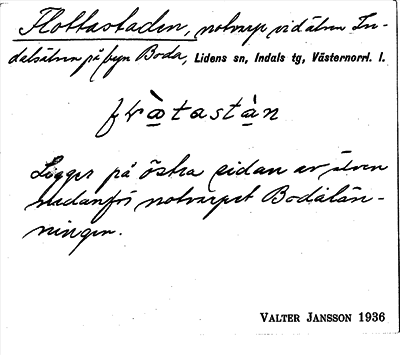 Flottastaden, notvarp vid älven In-
dalsälven på byn Boda, Lidens sn, Indals tg, Västernorrl. l.
Ligger på östra sidan av älven
nedanför notvarpet Bodålän-
ningen.
VALTER JANSSON 1936